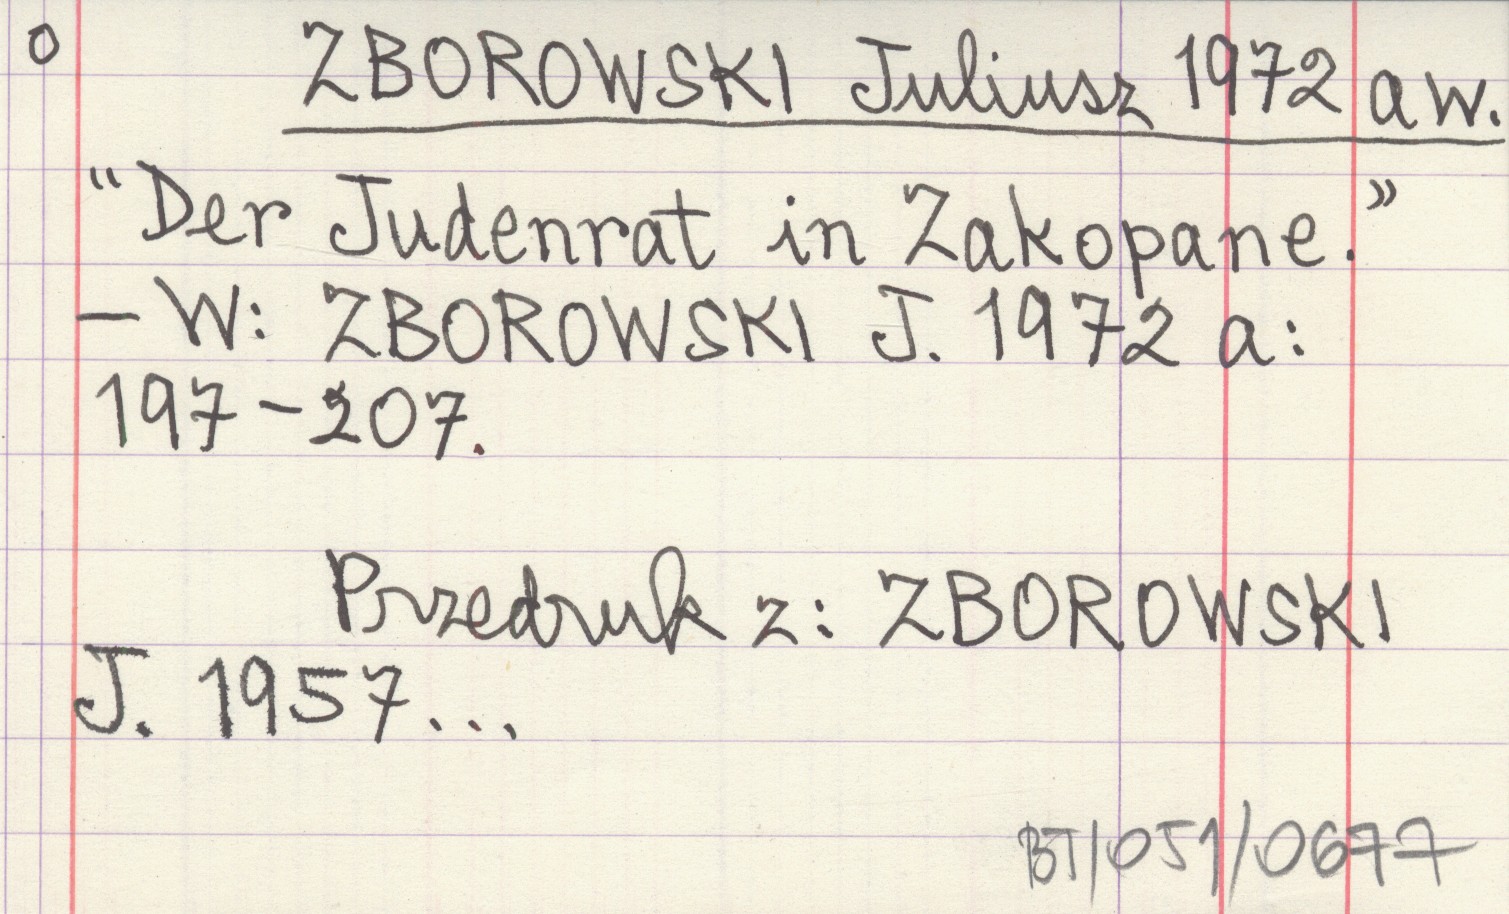 0 ZBOROWSKI Juliusz 1972 aw.
"Der Judenrat in Zakopane."
– W: ZBOROWSKI J. 1972 a:
197 – 207.
Przedruk z: ZBOROWSKI
J. 1957...
BT/051/0677